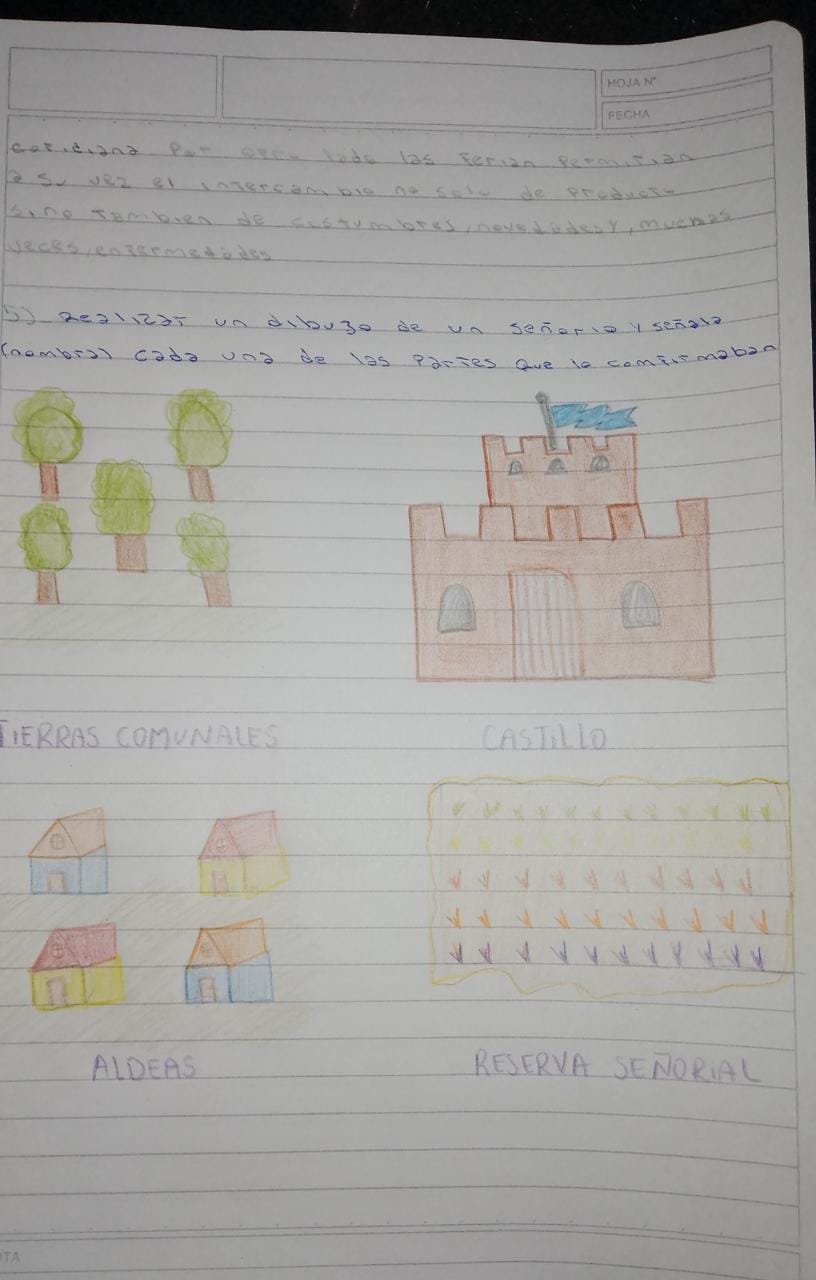 HOJA N°
FECHA
cotidiana Por otro lado las ferian Permitian
a su vez el intercambio no solo de Producto
sino tambien de costumbres, novedades y, muchas
veces, enfermedades
5) Realizar un dibuzo de un señorio y señala
(nombra) cada una de las Partes que lo comfirmaban
TIERRAS COMUNALES
CASTILLO
ALDEAS
RESERVA SEÑORIAL
OTA